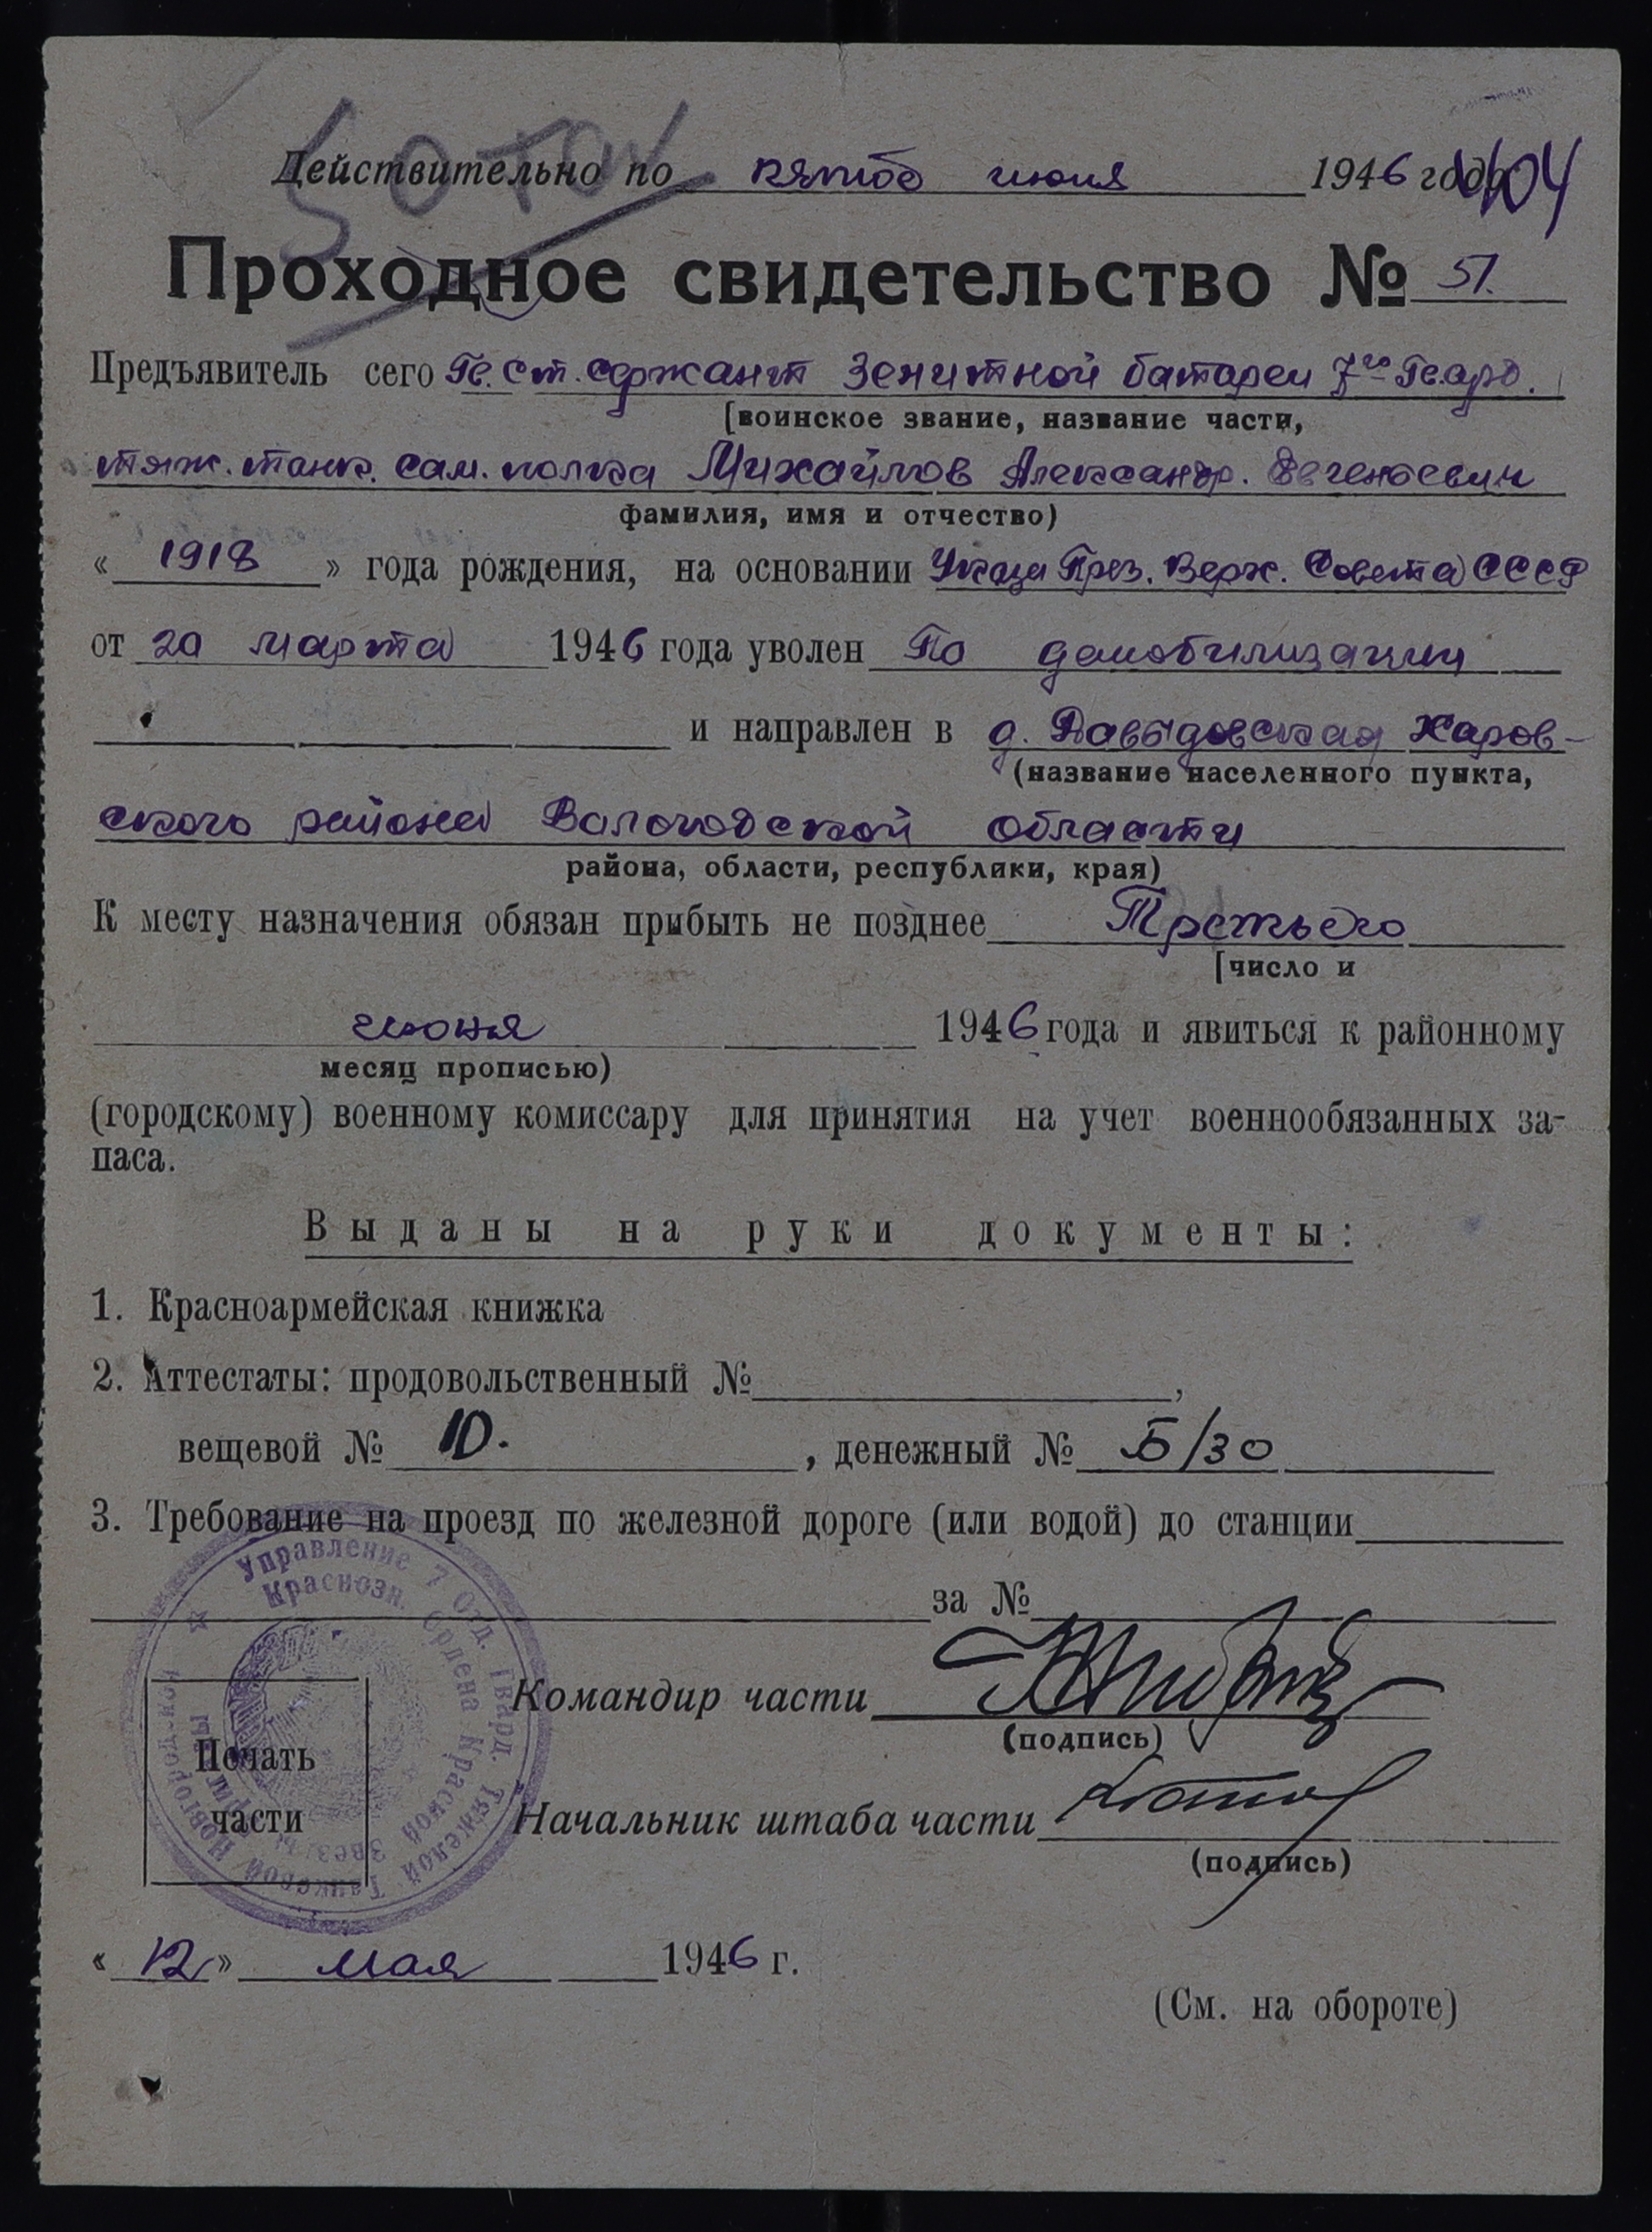 Действительно по пятое июня 1946 года
1404
Проходное свидетельство № 51.
Предъявитель сего Гв. ст. сержант Зенитной батареи 7ой Гв. орд.
[воинское звание, название части,
тяж. танк. сам. полка Михайлов Александр. Евгеньевич
фамилия, имя и отчество)
« 1918 » года рождения, на основании Указа През. Верх. Совета СССР
от 20 марта 1946 года уволен По демобилизации
и направлен в д. Давыдовская Харов-
(название населенного пункта,
ского района Вологодской области
района, области, республики, края)
К месту назначения обязан прибыть не позднее Третьего
[число и
июня 1946 года и явиться к районному
месяц прописью)
(городскому) военному комиссару для принятия на учет военнообязанных за-
паса.
Выданы на руки документы:
1. Красноармейская книжка
2. Аттестаты: продовольственный № ,
вещевой № 10. , денежный № Б/30
3. Требование на проезд по железной дороге (или водой) до станции
за №
Управление 7 Отд. Гвард. Тяжелой Танковой Новгород-кой
Краснозн. Ордена Красной Звезды Бригады
Командир части
(подпись)
Печать
части
Начальник штаба части
(подпись)
« 12 » мая 1946 г.
(См. на обороте)